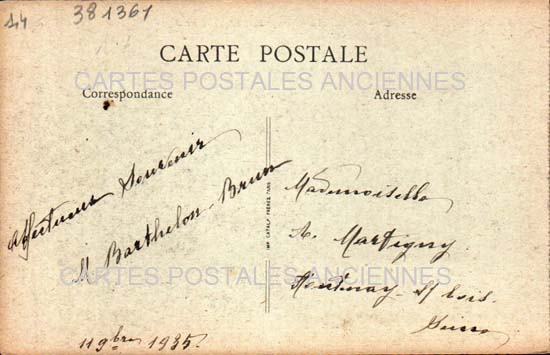 14
381361
CARTE POSTALE
CARTES POSTALES ANCIENNES
Correspondance
Adresse
Affectueux Souvenir
M Barthelon-Brun
11 9bre 1935.
IMP. CATALA FRÈRES PARIS
Mademoiselle
A. Martigny.
Fontenay-s/ bois.
Seine
CARTES POSTALES ANCIENNES